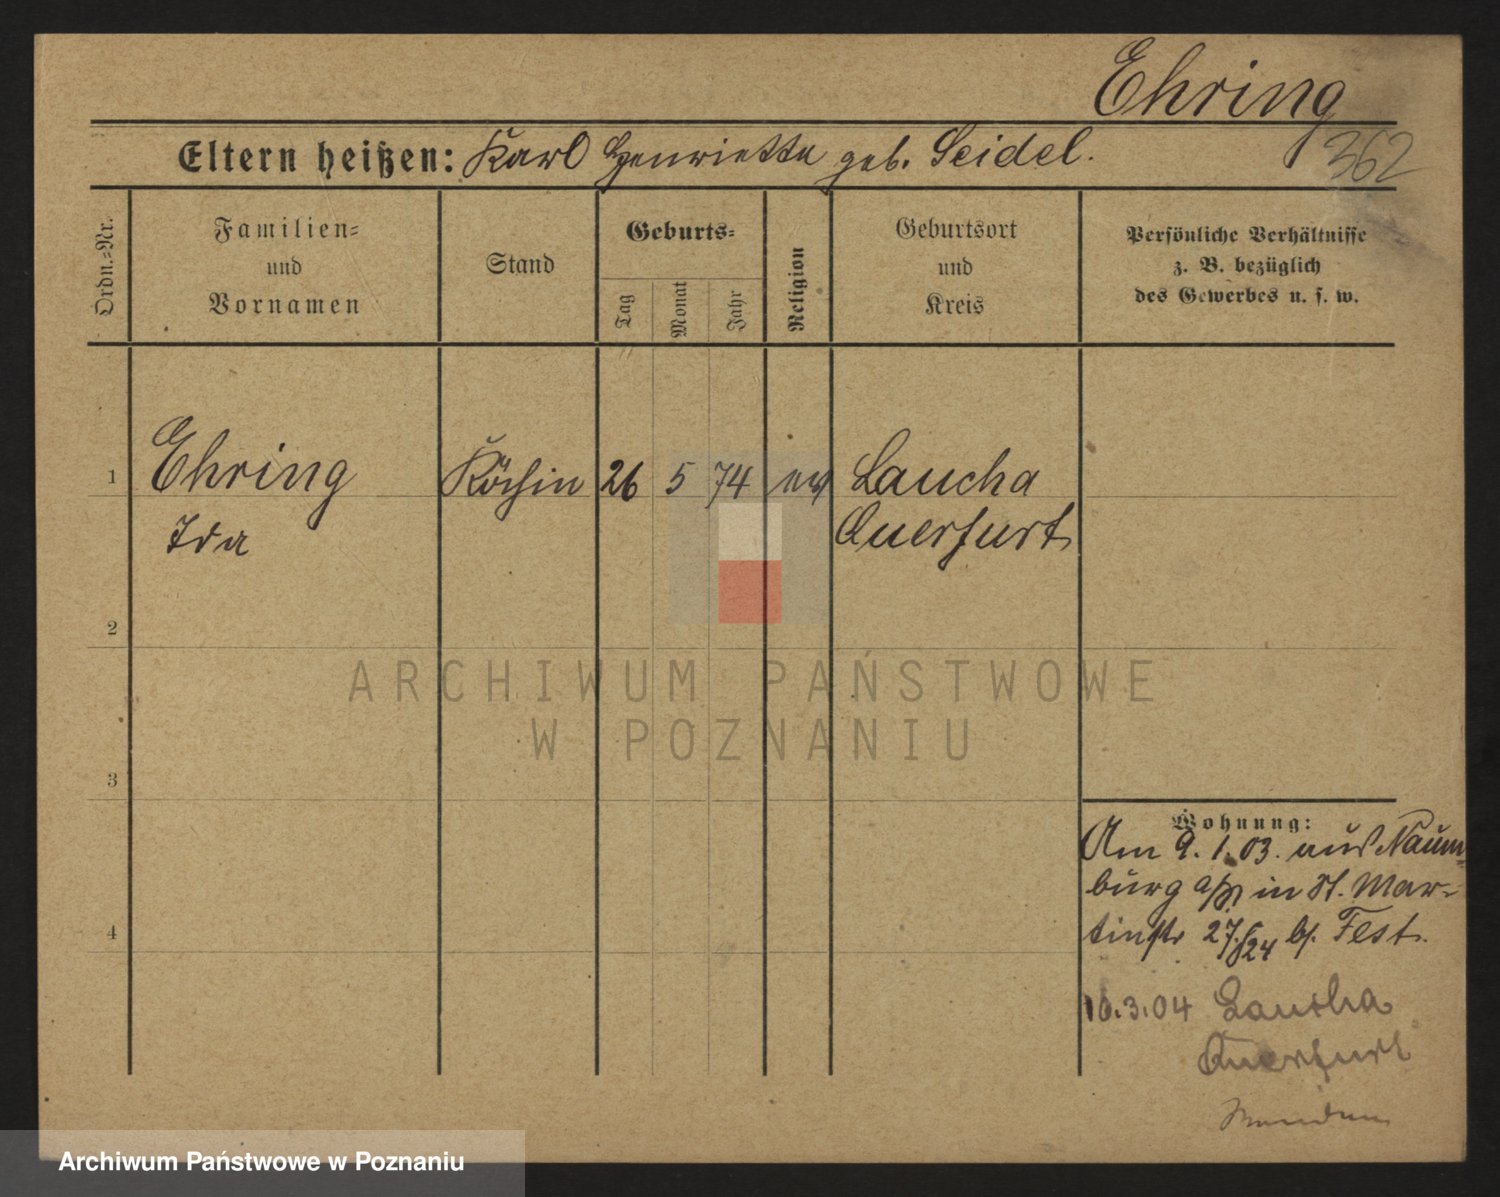 Ehring
362
Eltern heißen: Karl Henriette geb. Seidel.
Ordn.-Nr.
Familien- und Vornamen
Stand
Geburts-
Tag
Monat
Jahr
Religion
Geburtsort und Kreis
Persönliche Verhältnisse
z. B. bezüglich
des Gewerbes u. s. w.
1 Ehring Köchin 26 5 74 ev Laucha
Ida Querfurt
2
ARCHIWUM PAŃSTWOWE
W POZNANIU
3
Wohnung:
Am 9.1.03. aus Naum-
burg a/S in St. Mar-
4
tinstr 27/24 b/. Fest.
16.3.04 Laucha
Querfurt
Archiwum Państwowe w Poznaniu